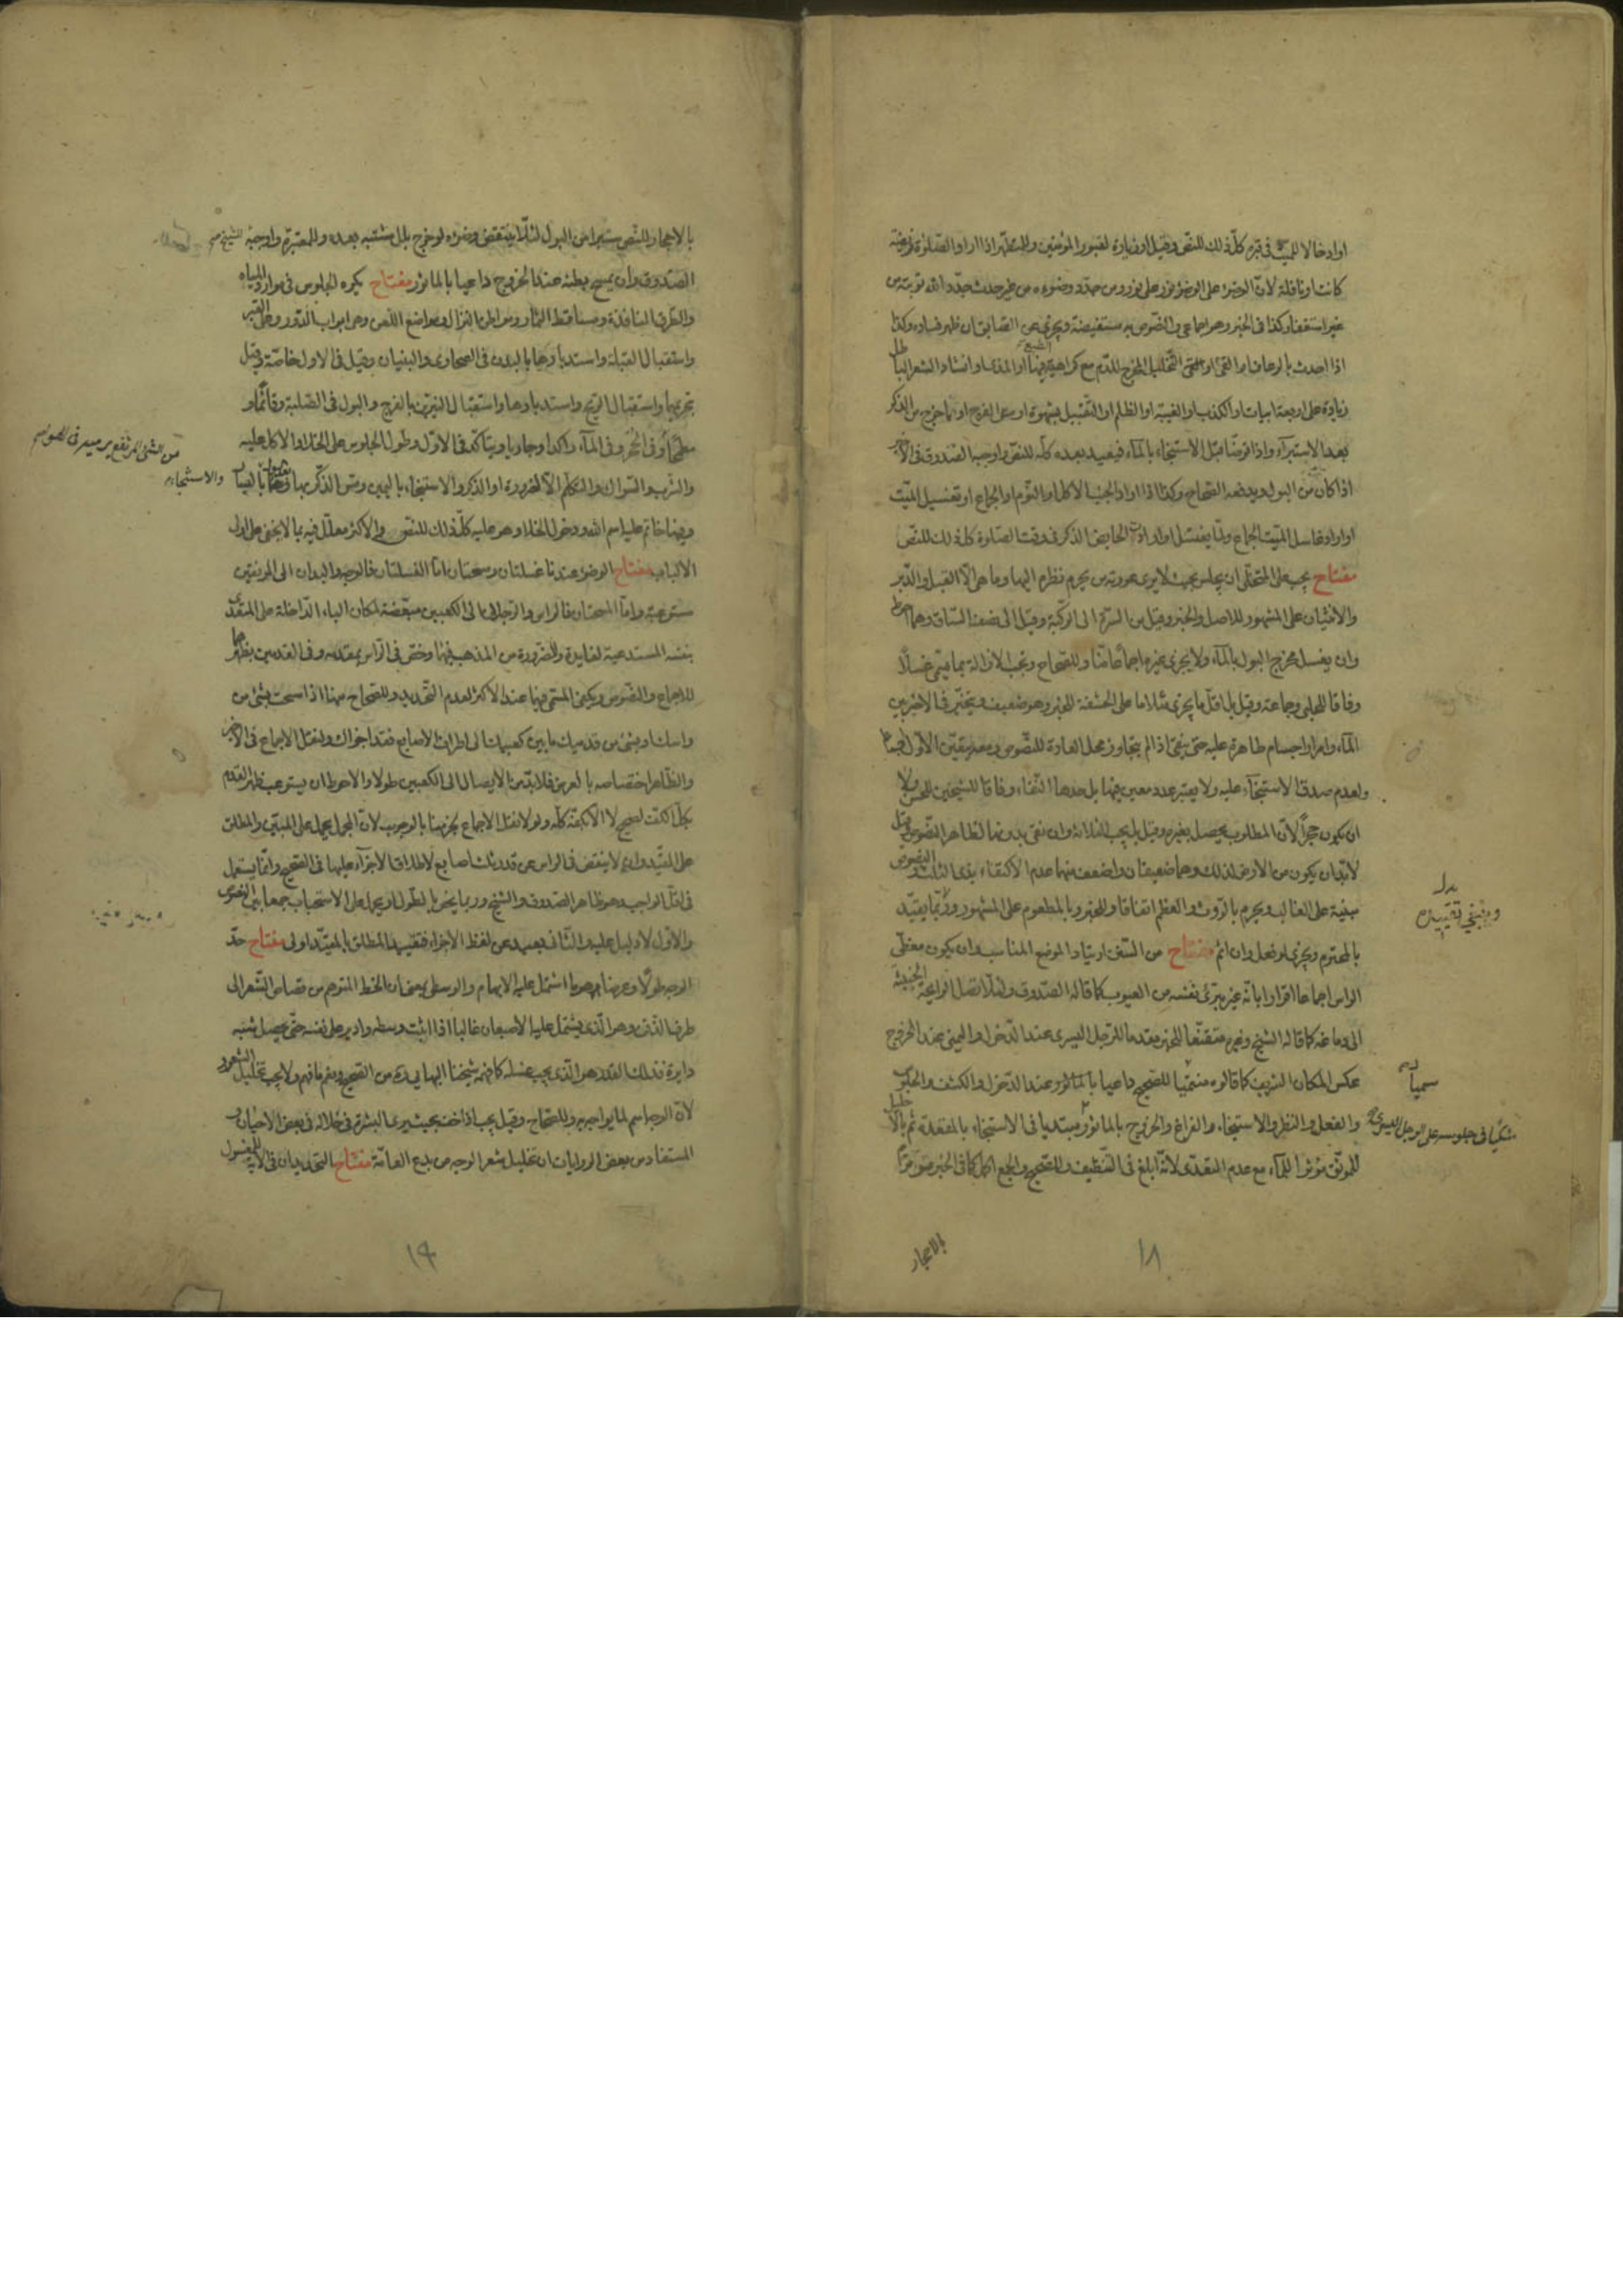 او ادخالا للميت فى قبره كلّ ذلك للنصّ وقيل او زيارة لقبور المؤمنين وللتطهّر اذا اراد الصّلوة فريضة
كانت او نافلة لانّ الوضوء على الوضوء نور على نور ومن جدّد وضوءه من غير حدث جدّد الله توبته من
غير استغفار كذا فى الخبر وهو اجماعى والنصوص به مستفيضة ويجزى عن السابق ان ظهر فساده وكذا
اذا احدث بالرعاف او القئ او التخليل المخرج للدّم مع كراهية الطبع فيهما او المذى او انشاد الشعر الباطل
زيادة على اربعة ابيات او الكذب او الغيبة او الظلم او التقبيل بشهوة او مس الفرج او بما خرج من الذكر
بعد الاستبراء واذا توضّا قبل الاستنجاء بالماء فيعيد بعده كلّه للنصّ واوجبه الصّدوق فى الاخير
اذا كان من البول ويدفعه الصحاح وكذا اذا اراد الجنب الاكل او النوم او الجماع او تغسيل الميّت
او اراد غاسل الميّت الجماع ولمّا يغتسل او ارادت الحايض الذكر فى وقت الصّلوة كلّ ذلك للنصّ
مفتاح يجب على المتخلّى ان يجلس بحيث لا يرى عورته من يحرم نظره اليها وما هى الا القبل والدّبر
والانثيان على المشهور للاصل والخبر وقيل من السرّة الى الركبة وقيل الى نصف السّاق وهما احوط
وان يغسل مخرج البول بالماء ولا يجزى غيره اجماعا منّا وللصحاح وتجب الازالة بما يسمّى غسلا
وفاقا للحلبى وجماعة وقيل بل اقلّ ما يجزى مثلا ما على الحشفة للخبر وهو ضعيف ويتخيّر فى الاخر بين
الماء وامرار اجسام طاهرة عليه حتى ينقى اذا لم يتجاوز محلّ العادة للنصوص ومعه يتعيّن الاول اجماعا
ولعدم صدق الاستنجاء عليه ولا يعتبر عدد معيّن فيهما بل حدها النّقاء وفاقا للشيخين للحسن ولا
ان يكون حجرا لانّ المطلوب يحصل بغيره وقيل بل يجب الثلاثة وان نقى بدونها لظاهر النّصوص وقيل
لابدّ ان يكون من الارض لذلك وهما ضعيفان واضعف منهما عدم الاكتفاء بذى الثلاث والنصوص
مبنية على الغالب ويحرم بالرّوث والعظم اتفاقا وللخبر وبالمطعوم على المشهور وربّما يقيّد
بدل
وينبغى تقييده
بالمحترم ويجزى لو فعل وان اثم مفتاح من السّنن ارتياد الموضع المناسب وان يكون مغطّى
الراس اجماعا اقرارا بانّه غير مبرّئ نفسه من العيوب كما قاله الصّدوق ولئلا تصل الرايحة الخبيثة
الى دماغه كما قاله الشيخ وغيره متقنّعا للخبر مقدما للرّجل اليسرى عند الدّخول واليمنى عند الخروج
عكس المكان الشريف كما قالوه مسمّيا للصحيح داعيا بالماثور عند الدّخول والكشف والجلوس
متكيا فى جلوسه على الرجل اليسرى
والفعل والنظر والاستنجاء والفراغ والخروج بالماثور مبتديا فى الاستنجاء بالمقعدة ثم بالاحليل
للموثّق مؤثرا للماء مع عدم التعدّى لانّه ابلغ فى التّنظيف وللصحيح والجمع اكمل كما فى الخبر موترا
بالاحجار
١٨
بالاحجار للنّص مستبرا من البول لئلّا ينتقض وضوءه لو خرج بلل مشتبه بعده وللمعتبرة واوجبه الشيخ
الصّدوق وان يمسح بطنه عند الخروج داعيا بالماثور مفتاح يكره الجلوس فى موارد المياه
والطرق النافذة ومساقط الثمار ومواطن النزال ومواضع اللعن وهى ابواب الدّور وعلى القبر
واستقبال القبلة واستدبارها بالبدن فى الصحارى والبنيان وقيل فى الاول خاصّة وقيل
بتحريمها واستقبال الريح واستدبارها واستقبال النيرين بالفرج والبول فى الصّلبة وقائما و
مطمّحا وفى الجُحر وفى الماء راكدا وجاريا ويتاكّد فى الاوّل وطول الجلوس على الخلا والاكل عليه
من الشى المرتفع
والشرب والسّواك والتكلم الا لضرورة او الذكر والاستنجاء باليمين ومسّ الذّكر بها والاستنجاء باليسار
وفيها خاتم عليه اسم الله ودخول الخلاء وهو عليه كلّ ذلك للنصّ والاكثر معلّل فيه بما لا يخفى على اولى
الالباب مفتاح الوضوء عندنا غسلتان ومسحتان امّا الغسلتان فالوجه واليدان الى المرفقين
مستوعبة وامّا المسحتان فالراس والرّجلان الى الكعبين مبعّضة لمكان الباء الدّاخلة على المتعدّى
بنفسه المستدعية لفايدة وللضرورة من المذهب فيهما وخصّ فى الرّاس بمقدمه وفى القدمين بظاهرهما
للاجماع والنّصوص ويكفى المسمّى فيها عند الاكثر لعدم التّحديد وللصحاح منها اذا مسحت بشئ من
راسك او بشئ من قدميك ما بين كعبيك الى اطراف الاصابع فقد اجزاك ولنقل الاجماع فى الاخير
والظّاهر اختصاصه بالعرض فلا بدّ من الايصال الى الكعبين طولا والاحوط ان يستوعب ظهر القدم
بكلّ الكفّ لصحيح لا الا بكفّه كلّه ولولا نقل الاجماع لجزمنا بالوجوب لانّ المجمل يحمل على المبيّن والمطلق
على المقيّد وان لا ينقص فى الراس عن قدر ثلث اصابع لاطلاق الاجزاء عليها فى الصّحيح وانّما يستعمل
فى اقلّ الواجب وهو ظاهر الصّدوق والشيخ وربما يخصّ بالطّول ويحمل على الاستحباب جمعا بين النصوص
والاوّل لا دليل عليه والثّانى بعيد عن لفظ الاجزاء فتقييد المطلق بالمقيّد اولى مفتاح حدّ
الوجه طولا وعرضا هو ما اشتمل عليه الابهام والوسطى بمعنى ان الخط المتوهم من قصاص الشّعر الى
طرف الذّقن وهو الّذى يشتمل عليه الاصبعان غالبا اذا اثبت وسطه وادير على نفسه حتّى يحصل شبه
دايرة فذلك القدر هو الّذى يجب غسله كما فهمه شيخنا البهايى ره من الصّحيح ونعم ما فهم ولا يجب تخليل الشعور
لانّ الوجه اسم لما يواجه به وللصّحاح وقيل يجب اذا خفّت بحيث يرى البشرة فى خلاله فى بعض الاحيان و
المستفاد من بعض الروايات ان تخليل شعر الوجه من بدع العامّة مفتاح التحديدان فى الاية للمغسول
١٩